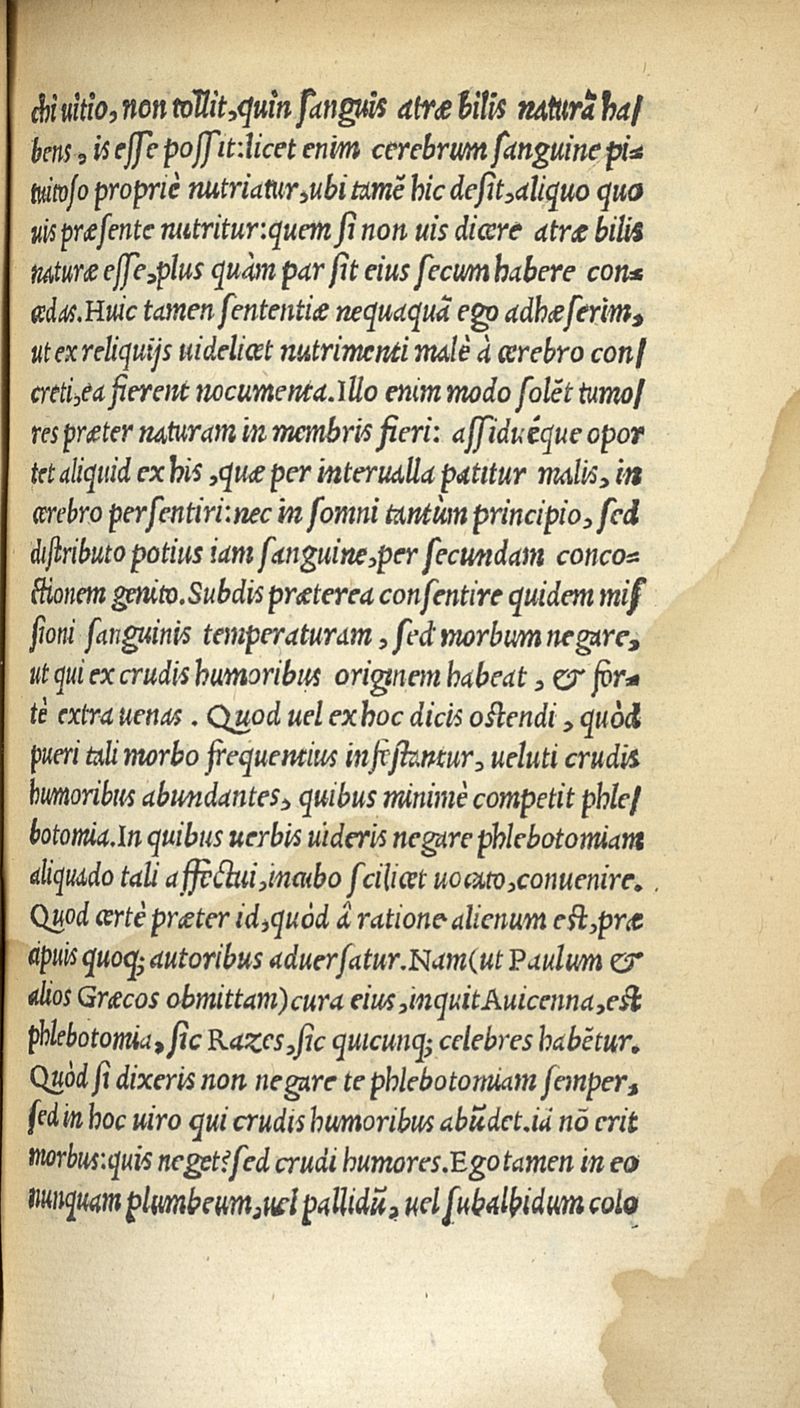 chi uitio, non tollit, quin sanguis atræ bilis naturã ha/
bens, is esse possit: licet enim cerebrum sanguine pi-
tuitoso propriè nutriatur, ubi tamẽ hic desit, aliquo quo
uis præsente nutritur: quem si non uis dicere atræ bilis
naturæ esse, plus quàm par sit eius secum habere con-
cedas. Huic tamen sententiæ nequaquã ego adhæserim,
ut ex reliquijs uidelicet nutrimenti malè à cerebro con/
creti, ea fierent nocumenta. Illo enim modo solẽt tumo/
res præter naturam in membris fieri: assiduéque opor
tet aliquid ex his, quæ per interualla patitur malis, in
cerebro persentiri: nec in somni tantùm principio, sed
distributo potius iam sanguine, per secundam conco-
ctionem genito. Subdis præterea consentire quidem mis
sioni sanguinis temperaturam, sed morbum negare,
ut qui ex crudis humoribus originem habeat, & for-
tè extra uenas. Quod uel ex hoc dicis ostendi, quòd
pueri tali morbo frequentius infestantur, ueluti crudis
humoribus abundantes, quibus minimè competit phle/
botomia. In quibus uerbis uideris negare phlebotomiam
aliquādo tali affectui, incubo scilicet uocato, conuenire.
Quod certè præter id, quòd â ratione alienum est, præ
cipuis quoq; autoribus aduersatur. Nam (ut Paulum &
alios Græcos obmittam) cura eius, inquit Auicenna, est
phlebotomia, sic Razes, sic quicunq; celebres habẽtur.
Quòd si dixeris non negare te phlebotomiam semper,
sed in hoc uiro qui crudis humoribus abũdet. iã nõ erit
morbus: quis neget? sed crudi humores. Ego tamen in eo
nunquam plumbeum, uel pallidũ, uel subalbidum colo